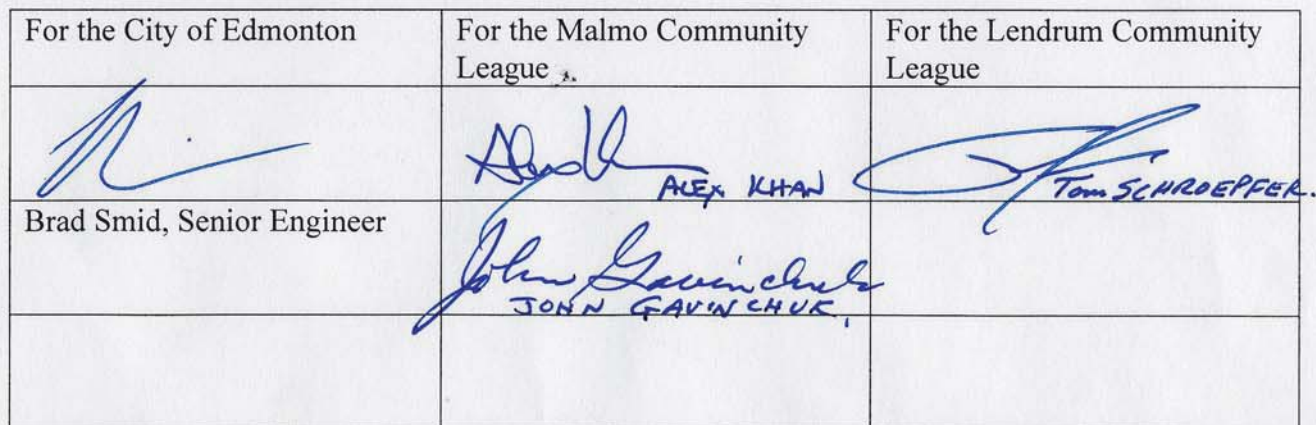 For the City of Edmonton
For the Malmo Community
League
For the Lendrum Community
League
ALEX KHAN
Tom SCHROEPFER.
Brad Smid, Senior Engineer
John Gavinchuk
JOHN GAVINCHUK,